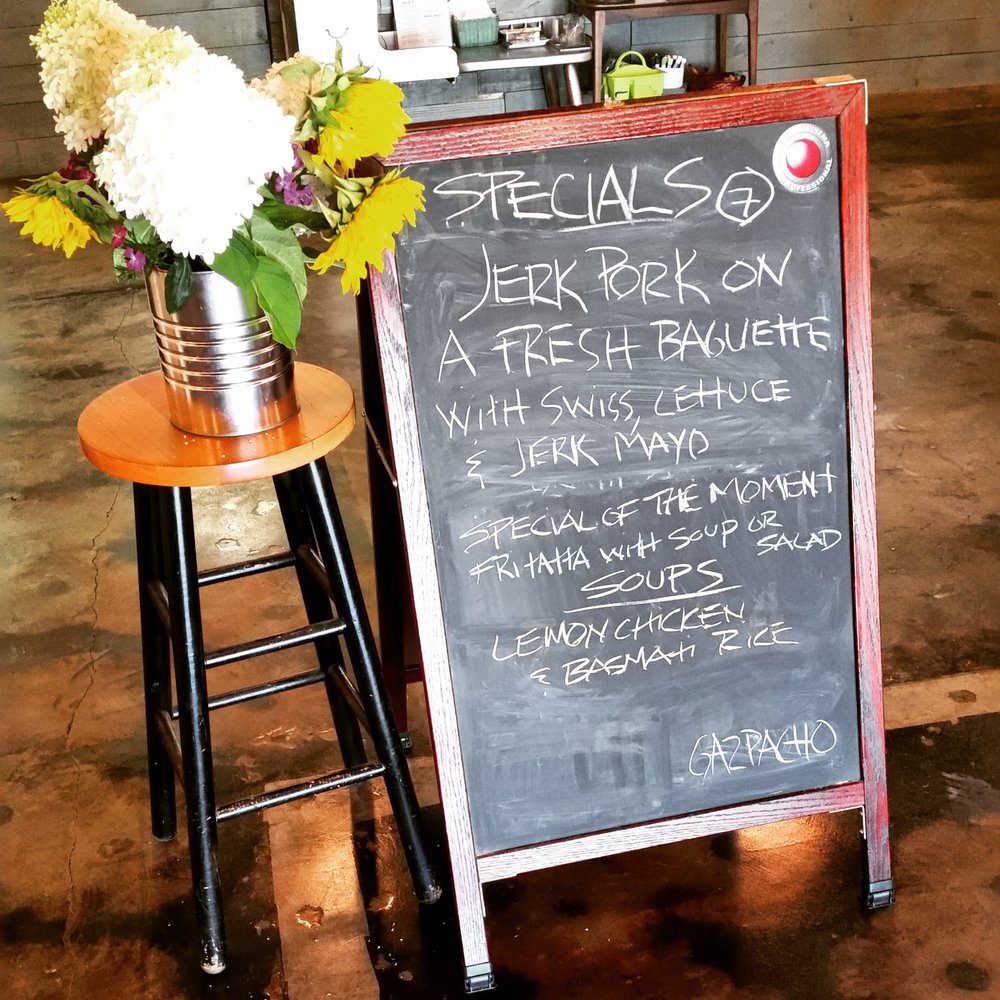 SPECIALS 7
JERK PORK ON
A FRESH BAGUETTE
WITH SWISS, LETTUCE
& JERK MAYO
SPECIAL OF THE MOMENT
FRITATTA WITH SOUP OR
SALAD
SOUPS
LEMON CHICKEN
& BASMATI RICE
GAZPACHO
CINEMA
PROFESSIONAL